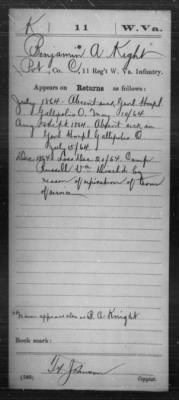 K 11 W.Va.
Benjamin A Kight
Pvt, Co. C, 11 Reg't W. Va. Infantry.
Appears on Returns as follows:
July 1864. Absent sick Genl Hospl
Gallipolis O. May 10/64
Aug to Sept 1864. Absent sick in
Genl Hospl Gallipolis O
July 15/64.
Dec. 1864. Loss Dec. 21/64 Camp
Russell Va. Disch'd by
reason of expiration of term
of service.
Name appears also as B. A. Knight
Book mark:
Johnson
Copyist.